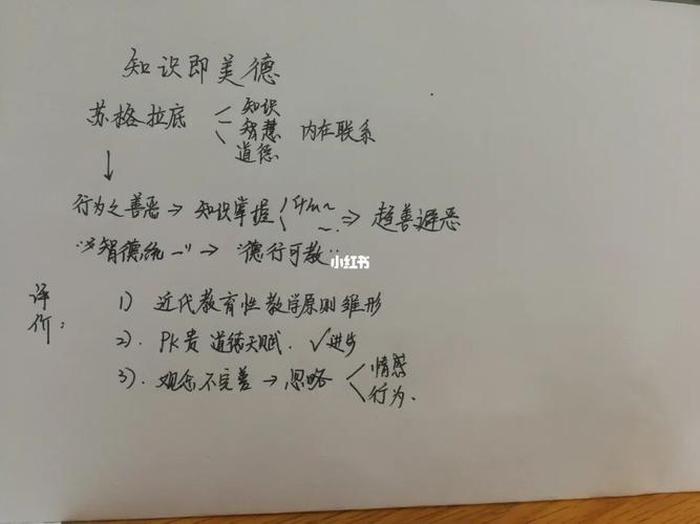 知识即美德
苏格拉底 知识
智慧 内在联系
道德
↓
行为之善恶 → 知识掌握 ⇒ 趋善避恶
"智德统一" → "德行可教"
小红书
评价:
1) 近代教育性教学原则雏形
2). PK贵 道德天赋. ✓进步
3). 观念不完善 → 忽略 情感
行为.